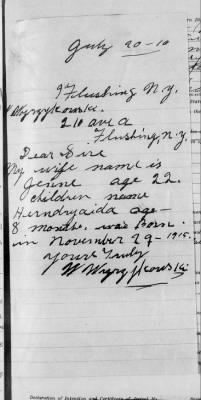 July 20-10
Flushing N.Y.
W Wyrzykowski.
210 ave a
Flushing, N.Y.
Dear Sire
My wife name is
Jenne age 22.
children name
age
8 months. was Born
in November 29-1915.
Youre Truly
W Wyrzykowski
Declaration of Intention and Certificate of Arrival No.